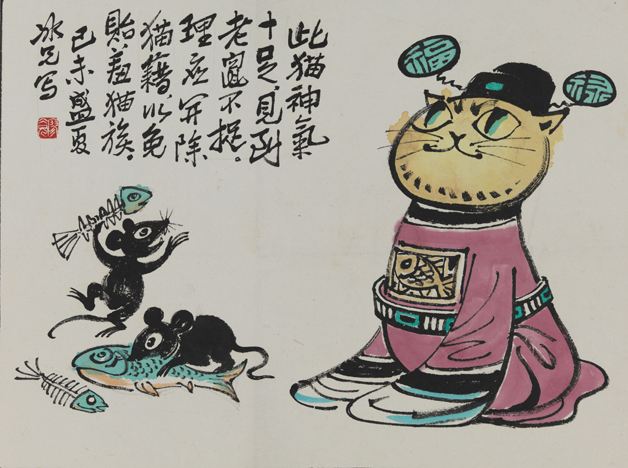 此猫神氣
十足,見到
老鼠不捉。
理应开除
猫籍以免
貽羞猫族。
己未盛夏
冰兄写
福
禄